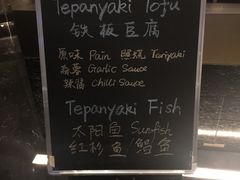 Tepanyaki Tofu
铁板豆腐
原味 Pain 照烧 Teriyaki
蒜蓉 Garlic Sauce
辣酱 Chilli Sauce
Tepanyaki Fish
太阳鱼 Sunfish
红杉鱼/鲳鱼